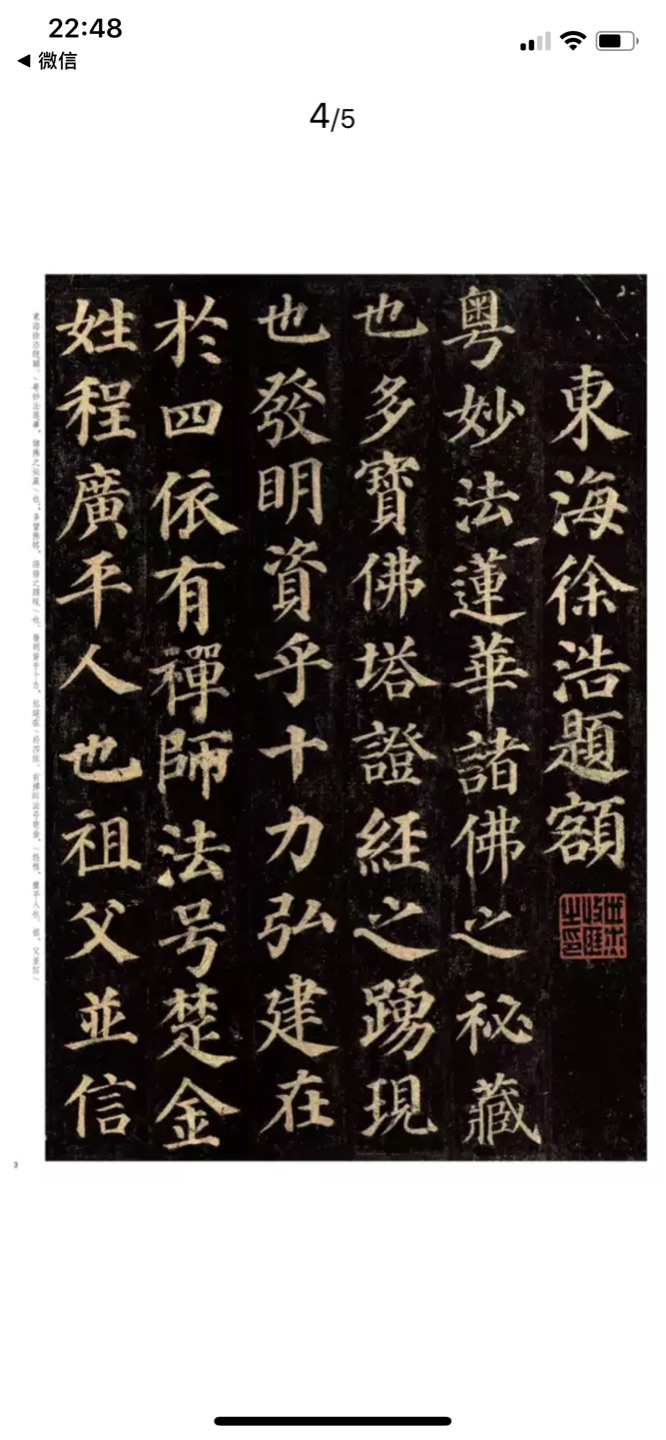 22:48
◀ 微信
4/5
東海徐浩題額
粵妙法蓮華諸佛之秘藏
也多寶佛塔證經之踴現
也發明資乎十力弘建在
於四依有禪師法号楚金
姓程廣平人也祖父並信
3